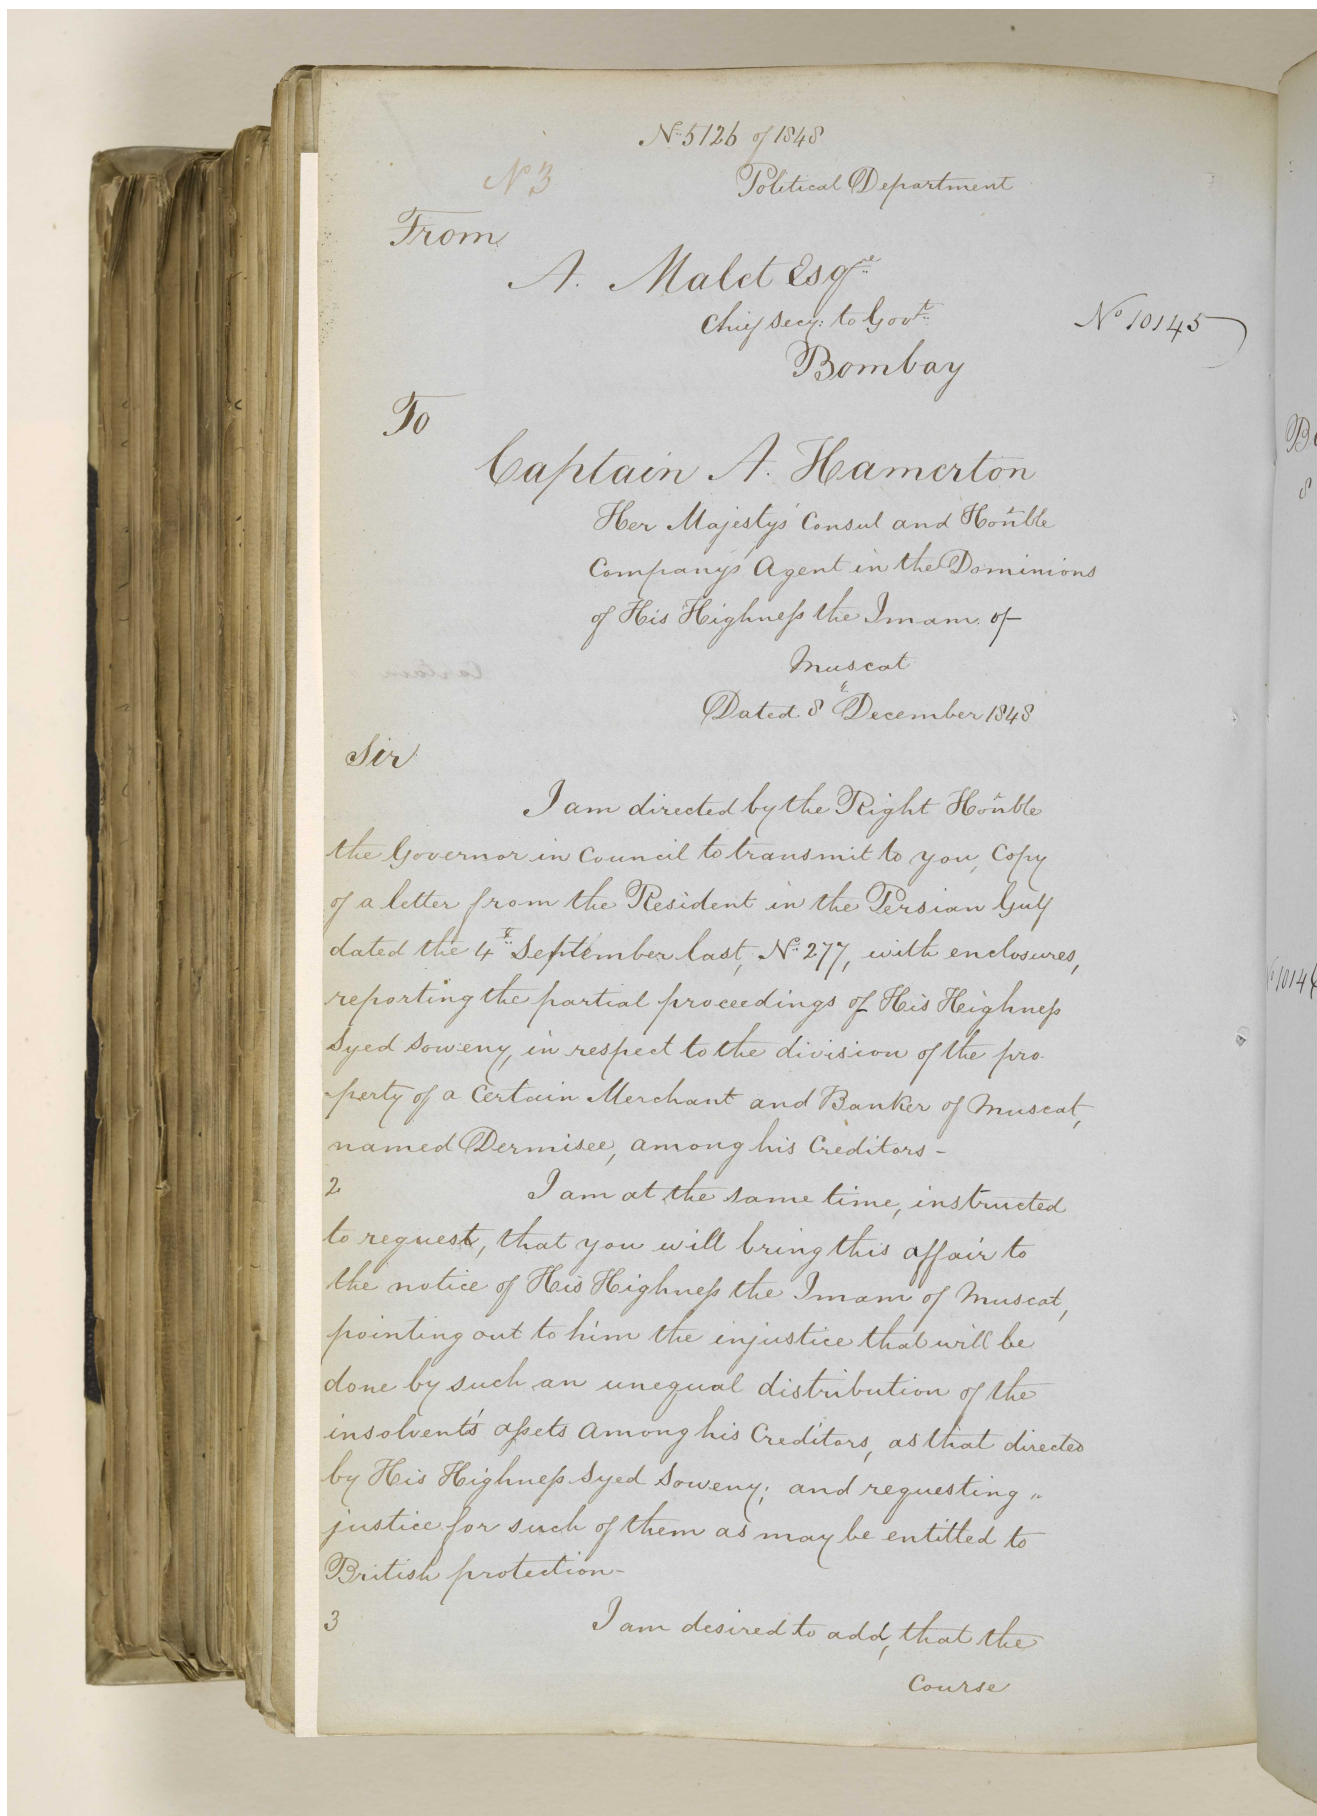 No. 5126 of 1848
No 3
Political Department
From
A. Malet Esqre
Chief Secy: to Govt.
No 10145
Bombay
To
Captain A. Hamerton
Her Majestys' Consul and Honble
Company's Agent in the Dominions
of His Highness the Imam of
Muscat
Dated 8th December 1848
Sir
I am directed by the Right Honble
the Governor in Council to transmit to you, Copy
of a letter from the Resident in the Persian Gulf
dated the 4th September last, No. 277, with enclosures,
reporting the partial proceedings of His Highness
Syed Soweny, in respect to the division of the pro-
-perty of a Certain Merchant and Banker of Muscat,
named Dermisee, among his Creditors -
2 I am at the same time, instructed
to request, that you will bring this affair to
the notice of His Highness the Imam of Muscat,
pointing out to him the injustice that will be
done by such an unequal distribution of the
insolvent's assets among his Creditors, as that directed
by His Highness Syed Soweny; and requesting "
justice for such of them as may be entitled to
British protection -
3 I am desired to add, that the
Course